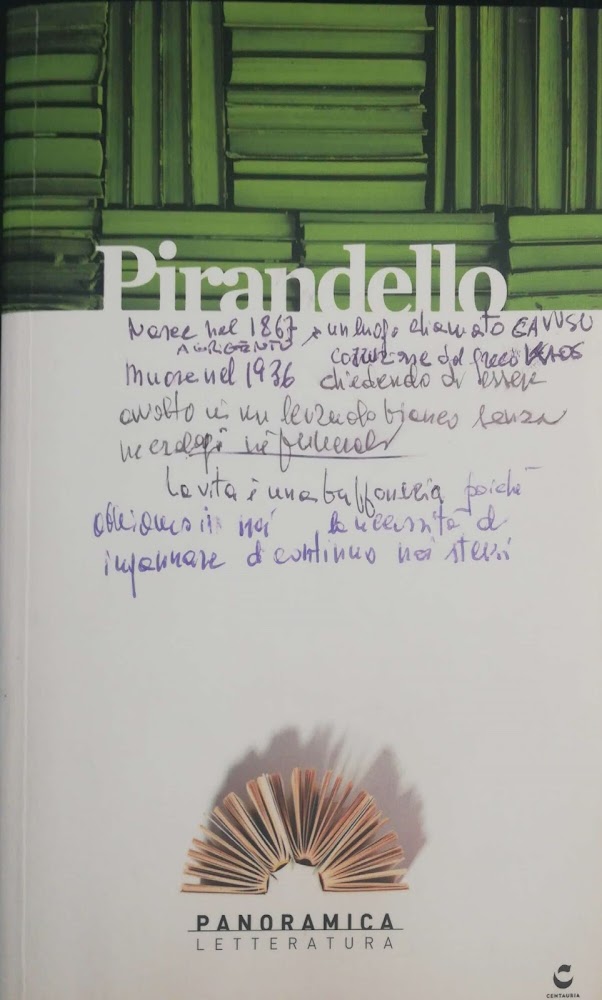 Pirandello
Nasce nel 1867 in un luogo chiamato CAVUSU
AGRIGENTO corruzione dal greco KAOS
muore nel 1936 chiedendo di essere
avvolto in un lenzuolo bianco senza
necrologi né funerali
La vita è una buffoneria poiché
abbiamo in noi la necessità di
ingannare di continuo noi stessi
PANORAMICA
LETTERATURA
CENTAURIA